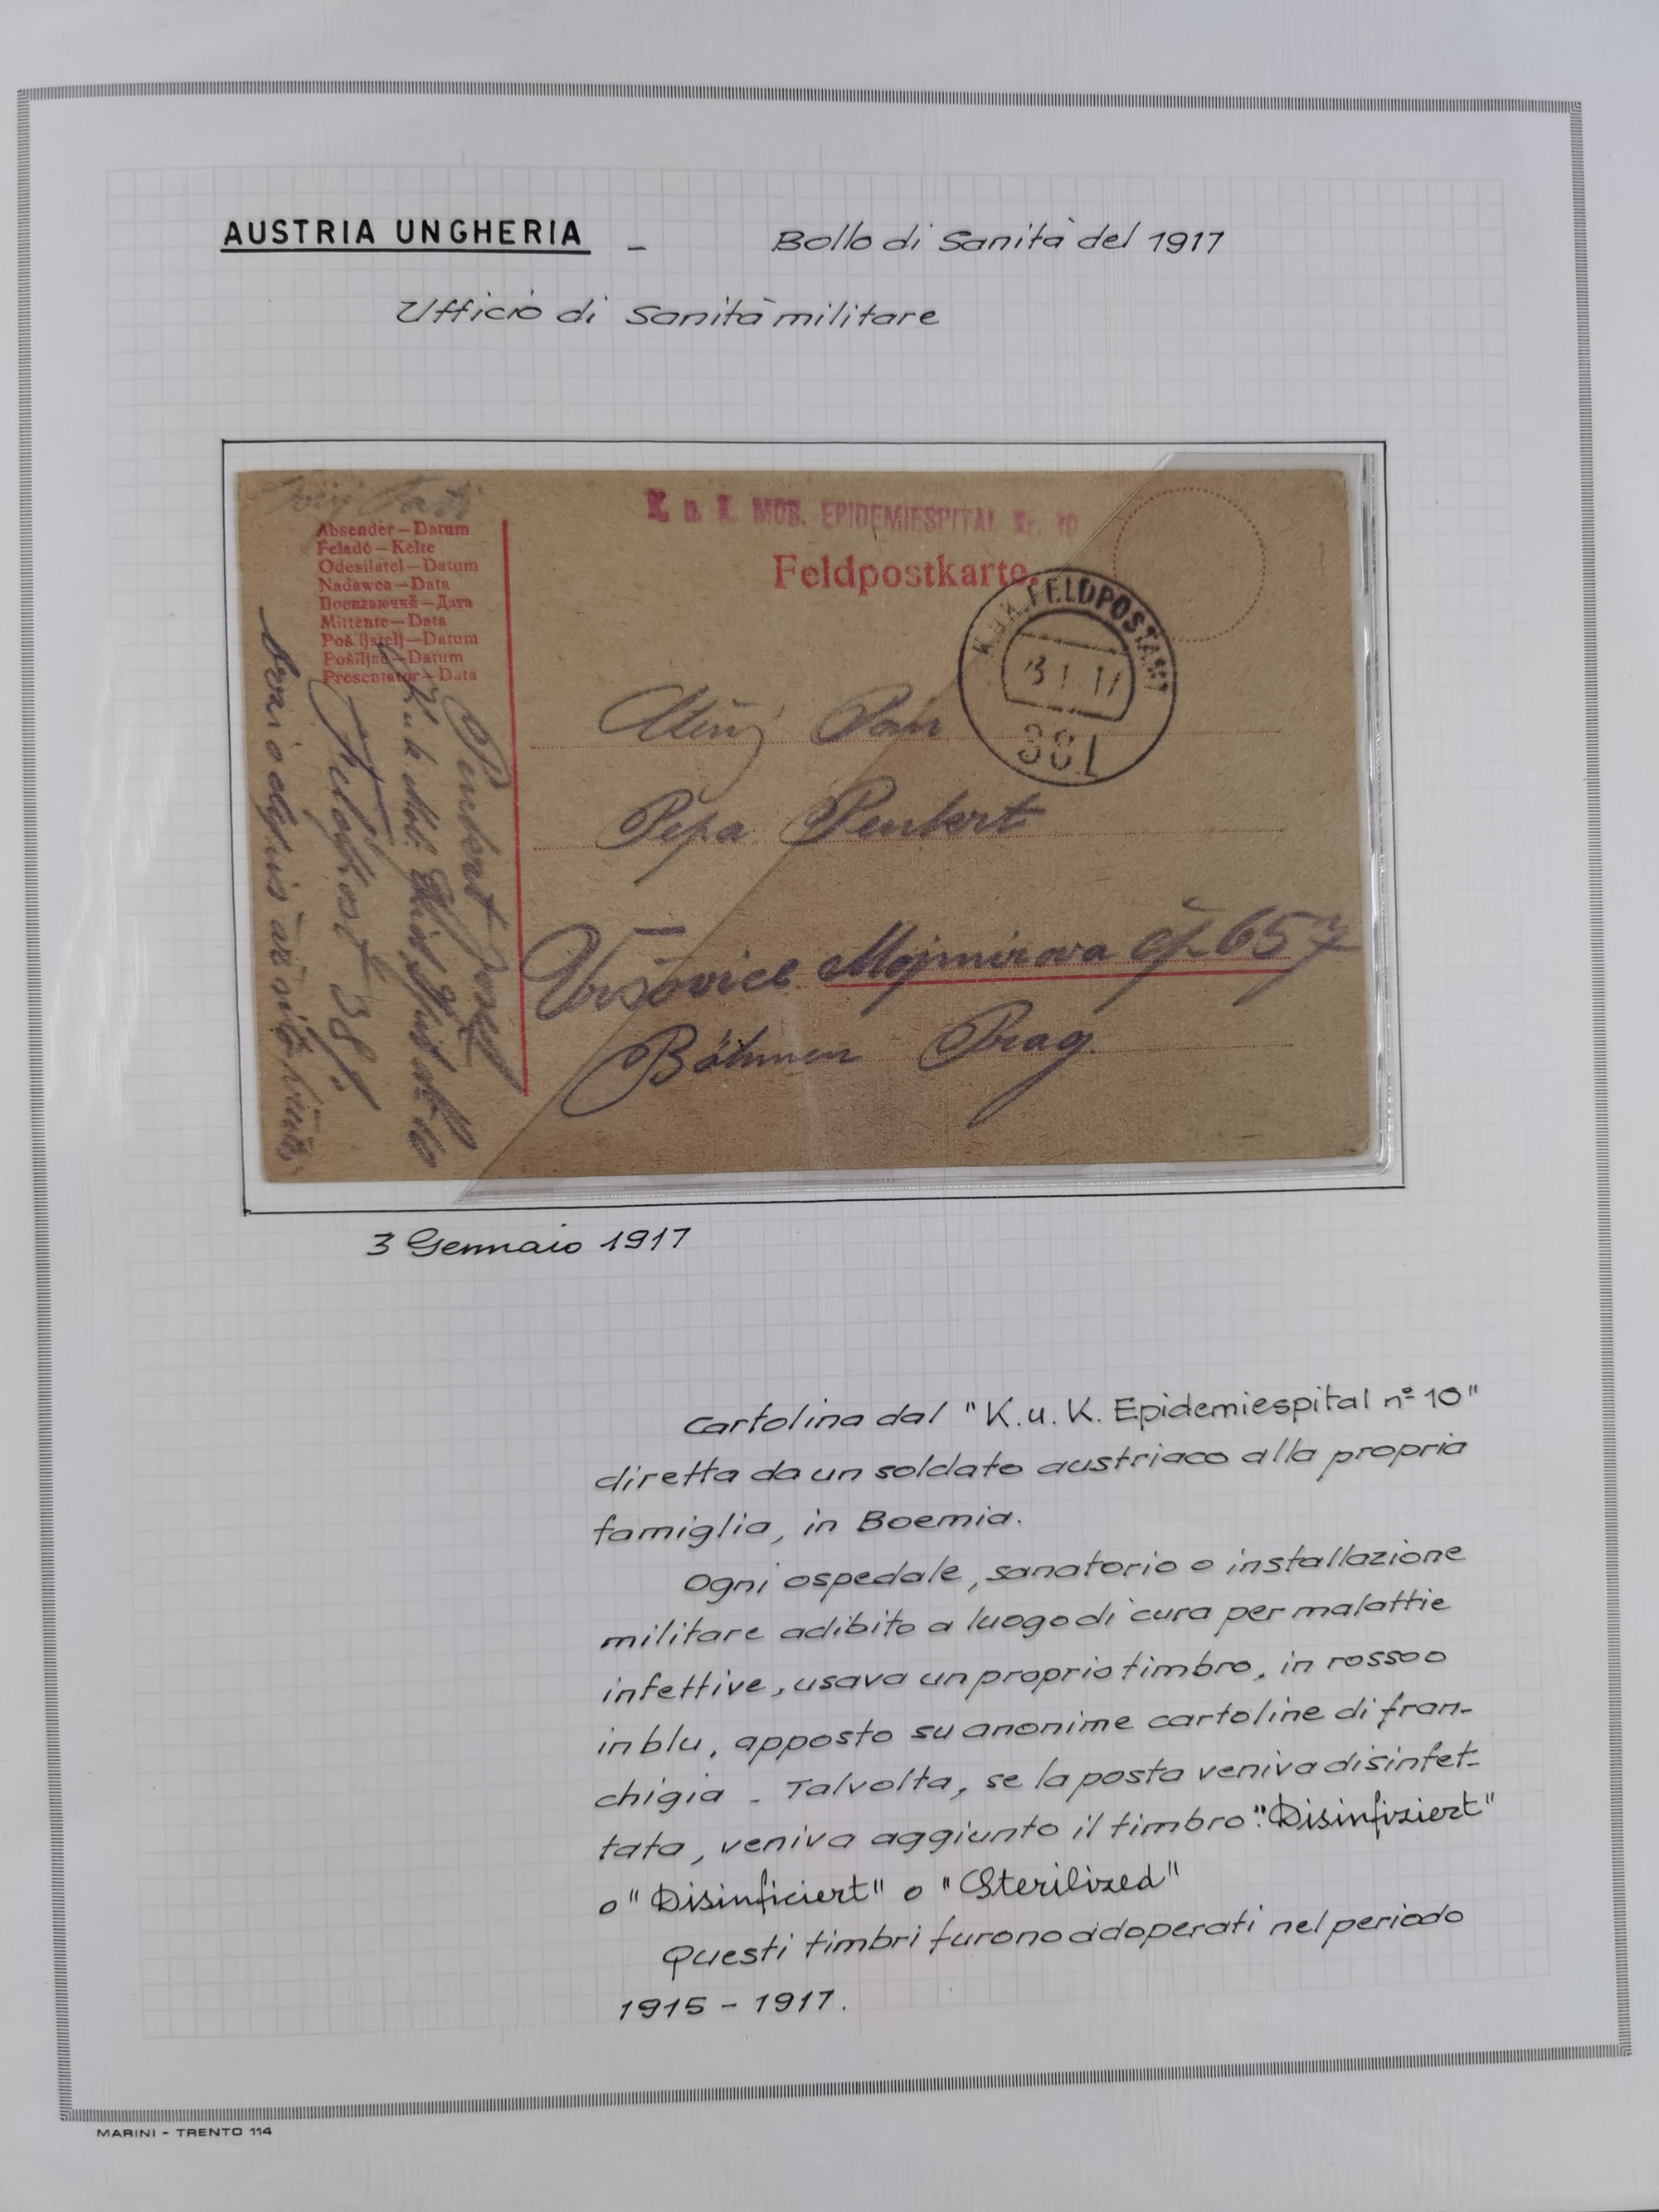 AUSTRIA UNGHERIA - Bollo di Sanità del 1917
Ufficio di Sanità militare
K. u. K. MOB. EPIDEMIESPITAL Nr. 10
Feldpostkarte.
Absender—Datum
Feladó—Kelte
Odesílatel—Datum
Nadawca—Data
Посилаючий—Дата
Mittente—Data
Pošiljatelj—Datum
Pošiljač—Datum
Presentator—Data
K.u.K. FELDPOSTAMT
3 I 17
381
Pan
Pepa Penkert
Vršovice Mojmirova čp 657
Böhmen Prag.
3 Gennaio 1917
Cartolina dal "K.u.K. Epidemiespital nº 10"
diretta da un soldato austriaco alla propria
famiglia, in Boemia.
Ogni ospedale, sanatorio o installazione
militare adibito a luogo di cura per malattie
infettive, usava un proprio timbro, in rosso o
in blu, apposto su anonime cartoline di fran-
chigia - Talvolta, se la posta veniva disinfet-
tata, veniva aggiunto il timbro: "Disinfiziert"
o "Disinficiert" o "Sterilized"
Questi timbri furono adoperati nel periodo
1915 - 1917.
MARINI - TRENTO 114